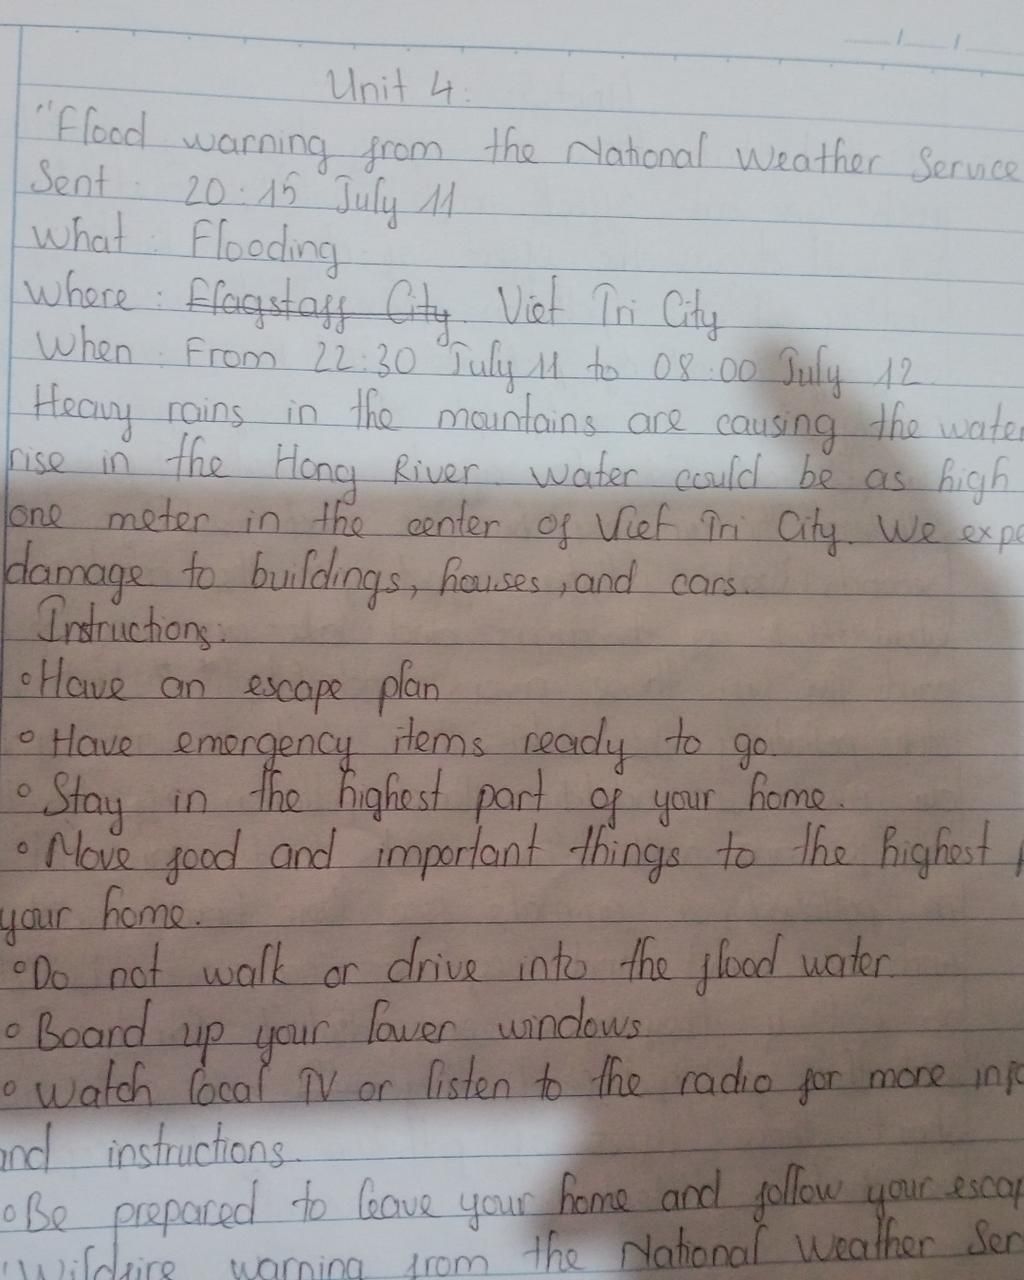 Unit 4:
"Flood warning from the National Weather Service
Sent : 20:15 July 11
What : Flooding
Where : Flagstaff City Viet Tri City
When : From 22:30 July 11 to 08:00 July 12
Heavy rains in the mountains are causing the water
rise in the Hong River. Water could be as high
one meter in the center of Viet Tri City. We expe
damage to buildings, houses, and cars.
Instructions:
• Have an escape plan
• Have emergency items ready to go.
• Stay in the highest part of your home.
• Move food and important things to the highest
your home.
• Do not walk or drive into the flood water
• Board up your lower windows
• Watch local TV or listen to the radio for more info
and instructions.
• Be prepared to leave your home and follow your escap
Wildfire warning from the National Weather Ser